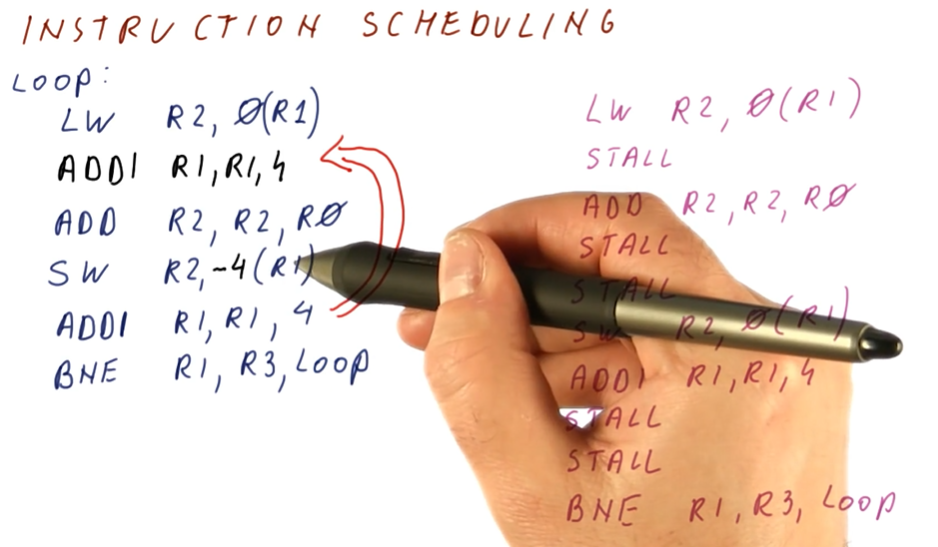 INSTRUCTION SCHEDULING
LOOP:
LW R2, 0(R1)
ADDI R1, R1, 4
ADD R2, R2, R0
SW R2, -4(R1)
ADDI R1, R1, 4
BNE R1, R3, LOOP
LW R2, 0(R1)
STALL
ADD R2, R2, R0
STALL
STALL
SW R2, 0(R1)
ADDI R1, R1, 4
STALL
STALL
BNE R1, R3, LOOP